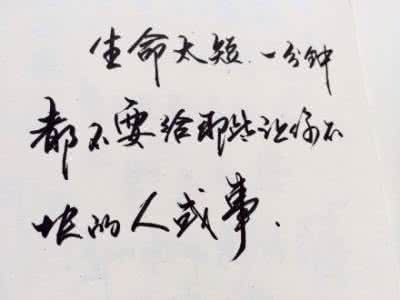 生命太短.一分钟
都不要给那些让你不
快的人或事.